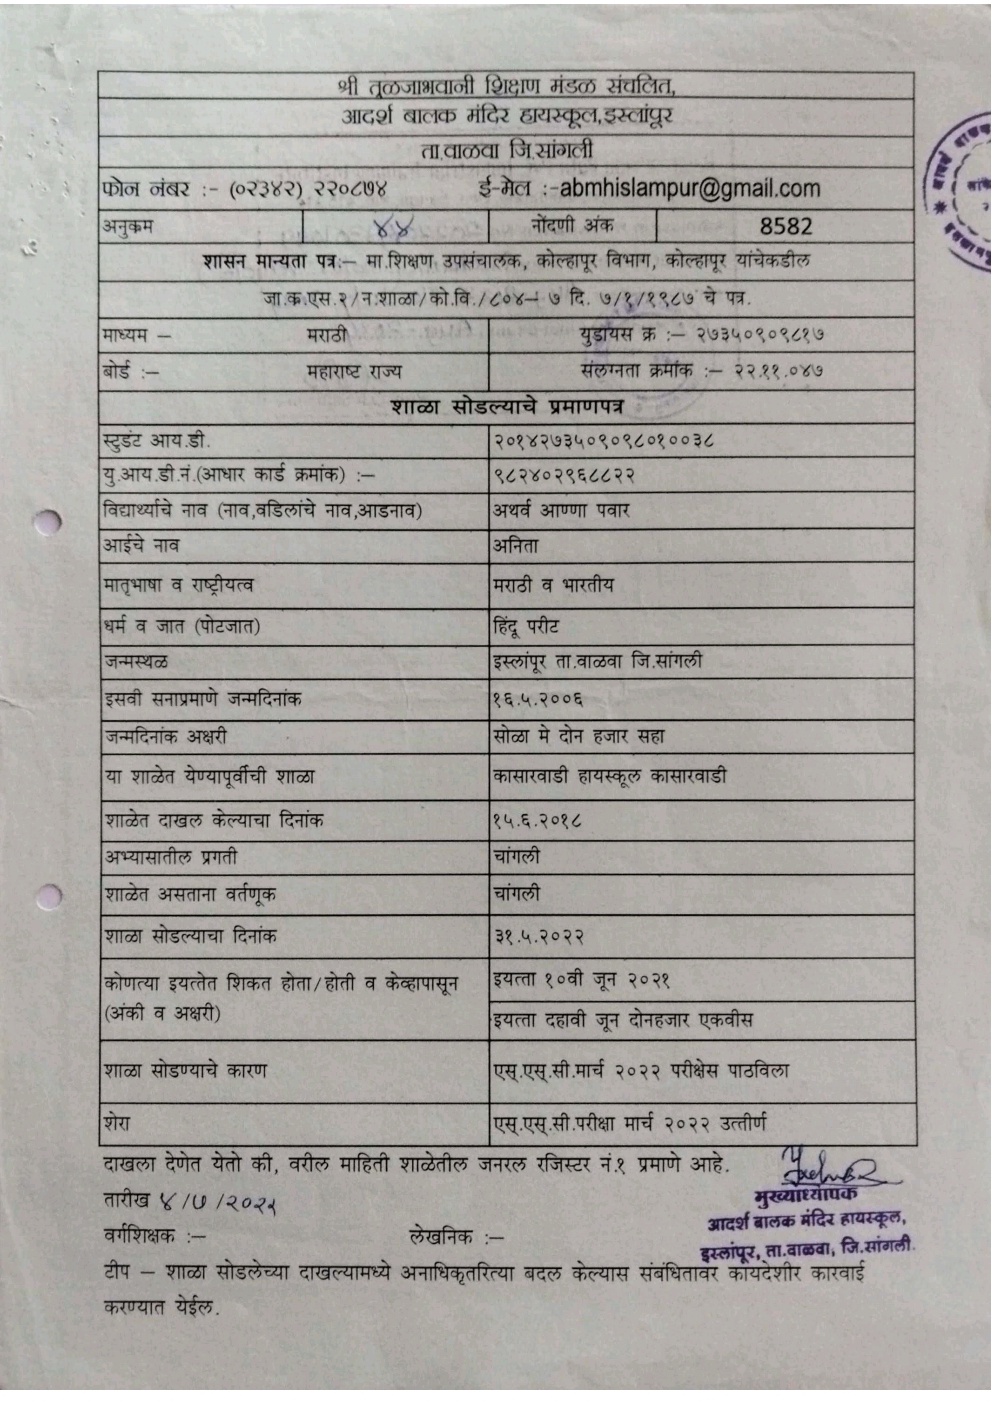 श्री तुळजाभवानी शिक्षण मंडळ संचलित,
आदर्श बालक मंदिर हायस्कूल,इस्लांपूर
ता.वाळवा जि.सांगली
फोन नंबर :- (०२३४२) २२०८७४ ई-मेल :-abmhislampur@gmail.com
अनुकम ४४ नोंदणी अंक 8582
शासन मान्यता पत्र:– मा.शिक्षण उपसंचालक, कोल्हापूर विभाग, कोल्हापूर यांचेकडील
जा.क.एस.२/न.शाळा/को.वि./८०४–७ दि. ७/१/१९८७ चे पत्र.
माध्यम – मराठी युडायस क्र :– २७३५०९०९८१७
बोर्ड :– महाराष्ट राज्य संलग्नता क्रमांक :– २२.११.०४७
शाळा सोडल्याचे प्रमाणपत्र
स्टुडंट आय.डी. २०१४२७३५०९०९८०१००३८
यु.आय.डी.नं.(आधार कार्ड क्रमांक) :– ९८२४०२९६८८२२
विद्यार्थ्याचे नाव (नाव,वडिलांचे नाव,आडनाव) अथर्व आण्णा पवार
आईचे नाव अनिता
मातृभाषा व राष्ट्रीयत्व मराठी व भारतीय
धर्म व जात (पोटजात) हिंदू परीट
जन्मस्थळ इस्लांपूर ता.वाळवा जि.सांगली
इसवी सनाप्रमाणे जन्मदिनांक १६.५.२००६
जन्मदिनांक अक्षरी सोळा मे दोन हजार सहा
या शाळेत येण्यापूर्वीची शाळा कासारवाडी हायस्कूल कासारवाडी
शाळेत दाखल केल्याचा दिनांक १५.६.२०१८
अभ्यासातील प्रगती चांगली
शाळेत असताना वर्तणूक चांगली
शाळा सोडल्याचा दिनांक ३१.५.२०२२
कोणत्या इयत्तेत शिकत होता/होती व केव्हापासून इयत्ता १०वी जून २०२१
(अंकी व अक्षरी) इयत्ता दहावी जून दोनहजार एकवीस
शाळा सोडण्याचे कारण एस्.एस्.सी.मार्च २०२२ परीक्षेस पाठविला
शेरा एस्.एस्.सी.परीक्षा मार्च २०२२ उत्तीर्ण
दाखला देणेत येतो की, वरील माहिती शाळेतील जनरल रजिस्टर नं.१ प्रमाणे आहे.
तारीख ४/७/२०२२
मुख्याध्यापक
आदर्श बालक मंदिर हायस्कूल,
इस्लांपूर, ता.वाळवा, जि.सांगली.
वर्गशिक्षक :– लेखनिक :–
टीप – शाळा सोडलेच्या दाखल्यामध्ये अनाधिकृतरित्या बदल केल्यास संबंधितावर कायदेशीर कारवाई
करण्यात येईल.